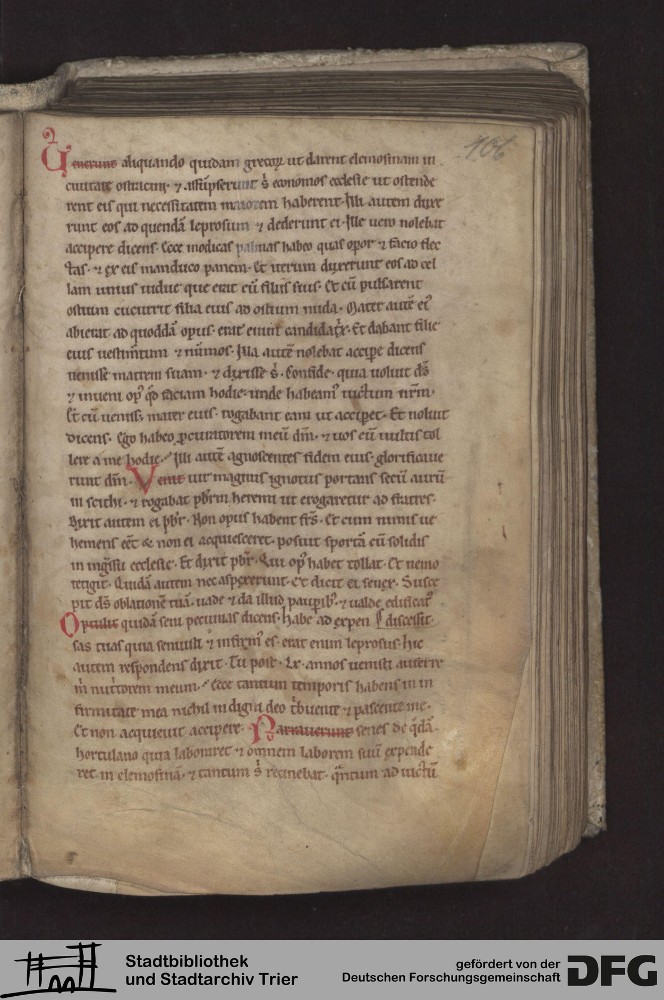 106
Venerunt aliquando quidam grecorꝝ ut darent elemosinam in
ciuitate ostracini · ⁊ assũpserunt sͥ economos ecclesie ut ostende
rent eis qui necessitatem maiorem haberent · Illi autem duxe
runt eos ad quendã leprosum ⁊ dederunt ei · Ille uero nolebat
accipere dicens · Ecce modicas palmas habeo quas opor ⁊ facio flec
tas · ⁊ ex eis manduco panem · Et iterum duxerunt eos ad cel
lam unius uidue que erat cũ filiis suis · Et cũ pulsarent
ostium cucurrit filia eius ad ostium nuda · Mater autẽ eiꝰ
abierat ad quoddã opus · erat enim candidatͥx · Et dabant filie
eius uestimtum ⁊ nũmos · Illa autẽ nolebat accipe dicens
uenisse matrem suam · ⁊ dixisse sͥ · Confide · quia uoluit ds̃
⁊ inueni opꝰ qd̃ faciam hodie · unde habeamꝰ uictum nrm̃ ·
Et cũ uenisset mater eius · rogabant eam ut accipet · Et noluit
dicens · Ego habeo ꝓcuratorem meũ dm̃ · ⁊ uos eũ uultis tol
lere a me hodie · Illi autẽ agnoscentes fidem eius · glorificaue
runt dm̃ · Venit uir magnus ignotus portans secũ aurũ
in scithi · ⁊ rogabat pbrm̃ heremi ut erogaretur ad fratres ·
Dixit autem ei pbr̃ · Non opus habent frs̃ · Et cum nimis ue
hemens eẽt & non ei acquiesceret · posuit sportã cũ solidis
in ingͣssu ecclesie · Et dixit pbr̃ · Qui opꝰ habet tollat · Et nemo
tetigit · Quidã autem nec aspexerunt · Et dicit ei senex · Susce
pit ds̃ oblationẽ tuã · uade ⁊ da illud paupibꝰ · ⁊ ualde edificatꝰ
Optulit quidã seni pecunias dicens · Habe ad expen discessit ·
sas tuas quia senuisti ⁊ infirmꝰ es · erat enim leprosus · Hic
autem respondens dixit · Tu post · lx · annos uenisti auferre
m̃ nutͥtorem meum · Ecce tantum temporis habens in in
firmitate mea nichil indigui deo tͥbuente ⁊ pascente me ·
Et non acquieuit accipere · Narrauerunt senes de qͦdã
hortulano quia laboraret ⁊ omnem laborem suũ expende
ret in elemosinã · ⁊ tantum sͥ retinebat · qͣntum ad uictũ
Stadtbibliothek
und Stadtarchiv Trier
gefördert von der
Deutschen Forschungsgemeinschaft
DFG